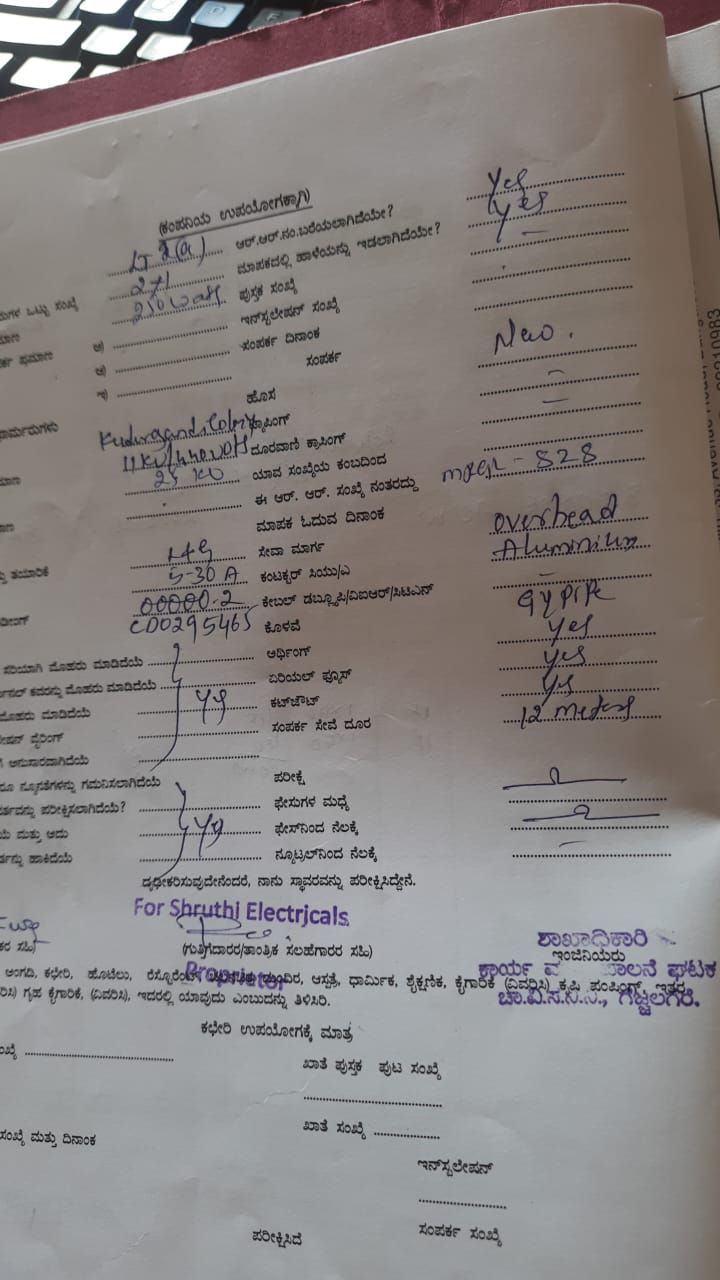 (ಕಂಪನಿಯ ಉಪಯೋಗಕ್ಕಾಗಿ)
LT 2(a) ಆರ್.ಆರ್.ನಂ.ಬರೆಯಲಾಗಿದೆಯೇ? Yes
ಗಳ ಒಟ್ಟು ಸಂಖ್ಯೆ 271 ಮಾಪಕದಲ್ಲಿ ಹಾಳೆಯನ್ನು ಇಡಲಾಗಿದೆಯೇ? Yes
210 watts ಪುಸ್ತಕ ಸಂಖ್ಯೆ
ಪ್ರಮಾಣ ಅ) ಇನ್‌ಸ್ಟಲೇಷನ್ ಸಂಖ್ಯೆ
ಆ) ಸಂಪರ್ಕ ದಿನಾಂಕ
ಇ) ಸಂಪರ್ಕ New.
ಹೊಸ
ಕ್ರಾಸಿಂಗ್
ದೂರವಾಣಿ ಕ್ರಾಸಿಂಗ್
25 KV ಯಾವ ಸಂಖ್ಯೆಯ ಕಂಬದಿಂದ
ಈ ಆರ್. ಆರ್. ಸಂಖ್ಯೆ ನಂತರದ್ದು 828
ಮಾಪಕ ಓದುವ ದಿನಾಂಕ
L&G ಸೇವಾ ಮಾರ್ಗ overhead
ತಯಾರಿಕೆ 5-30 A ಕಂಟಕ್ಟರ್ ಸಿಯು/ಎ Aluminium
00000.2 ಕೇಬಲ್ ಡಬ್ಲ್ಯೂಪಿ/ವಿಐಆರ್/ಸಿಟಿಎನ್
CD0295465 ಕೊಳವೆ GI pipe
ಸರಿಯಾಗಿ ಮೊಹರು ಮಾಡಿದೆಯೆ ಆರ್ಥಿಂಗ್ yes
ಕವರನ್ನು ಮೊಹರು ಮಾಡಿದೆಯೆ ಏರಿಯಲ್ ಫ್ಯೂಸ್ yes
ಮೊಹರು ಮಾಡಿದೆಯೆ yes ಕಟ್‌ಔಟ್ yes
ವೈರಿಂಗ್ ಸಂಪರ್ಕ ಸೇವೆ ದೂರ 12 meters
ಅನುಸಾರವಾಗಿದೆಯೆ
ನ್ಯೂನತೆಗಳನ್ನು ಗಮನಿಸಲಾಗಿದೆಯೆ ಪರೀಕ್ಷೆ
ಪರೀಕ್ಷಿಸಲಾಗಿದೆಯೆ? ಫೇಸುಗಳ ಮಧ್ಯೆ
ಮತ್ತು ಅದು yes ಫೇಸ್‌ನಿಂದ ನೆಲಕ್ಕೆ
ಹಾಕಿದೆಯೆ ನ್ಯೂಟ್ರಲ್‌ನಿಂದ ನೆಲಕ್ಕೆ
ದೃಢೀಕರಿಸುವುದೇನೆಂದರೆ, ನಾನು ಸ್ಥಾವರವನ್ನು ಪರೀಕ್ಷಿಸಿದ್ದೇನೆ.
For Shruthi Electricals
ಸಹಿ) (ಗುತ್ತಿಗೆದಾರರ/ತಾಂತ್ರಿಕ ಸಲಹೆಗಾರರ ಸಹಿ) ಶಾಖಾಧಿಕಾರಿ
ಇಂಜಿನಿಯರು
Proprietor
ಅಂಗಡಿ, ಕಛೇರಿ, ಹೋಟೆಲು, ಆಸ್ಪತ್ರೆ, ಧಾರ್ಮಿಕ, ಶೈಕ್ಷಣಿಕ, ಕೈಗಾರಿಕೆ (ವಿವರಿಸಿ) ಕೃಷಿ ಪಂಪಿಂಗ್, ಇತರ
ಗೃಹ ಕೈಗಾರಿಕೆ, (ವಿವರಿಸಿ), ಇದರಲ್ಲಿ ಯಾವುದು ಎಂಬುದನ್ನು ತಿಳಿಸಿರಿ.
ಕಾರ್ಯ ಪಾಲನೆ ಘಟಕ
ಚಾ.ವಿ.ಸ.ನಿ.ನಿ., ಗೆಜ್ಜಲಗೆರೆ.
ಕಛೇರಿ ಉಪಯೋಗಕ್ಕೆ ಮಾತ್ರ
ಖಾತೆ ಪುಸ್ತಕ ಪುಟ ಸಂಖ್ಯೆ
ಖಾತೆ ಸಂಖ್ಯೆ
ಸಂಖ್ಯೆ ಮತ್ತು ದಿನಾಂಕ
ಇನ್‌ಸ್ಟಲೇಷನ್
ಪರೀಕ್ಷಿಸಿದೆ ಸಂಪರ್ಕ ಸಂಖ್ಯೆ